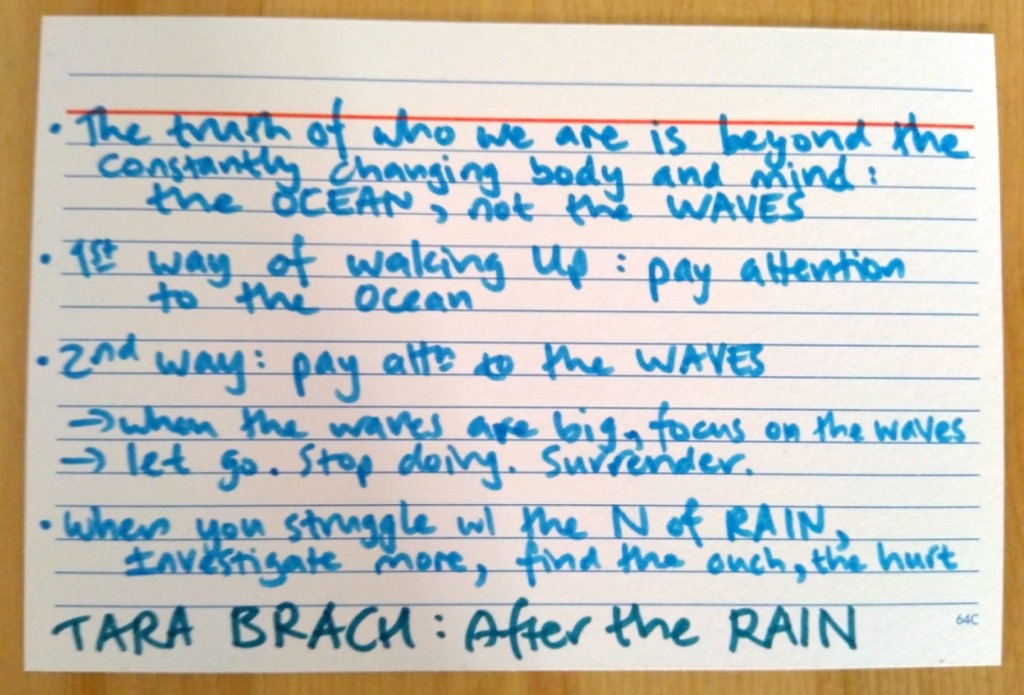 • The truth of who we are is beyond the
constantly changing body and mind:
the OCEAN, not the WAVES
• 1st way of waking up: pay attention
to the ocean
• 2nd way: pay attn to the WAVES
→ when the waves are big, focus on the waves
→ let go. Stop doing. Surrender.
• When you struggle w/ the N of RAIN,
Investigate more, find the ouch, the hurt
TARA BRACH: After the RAIN
64C